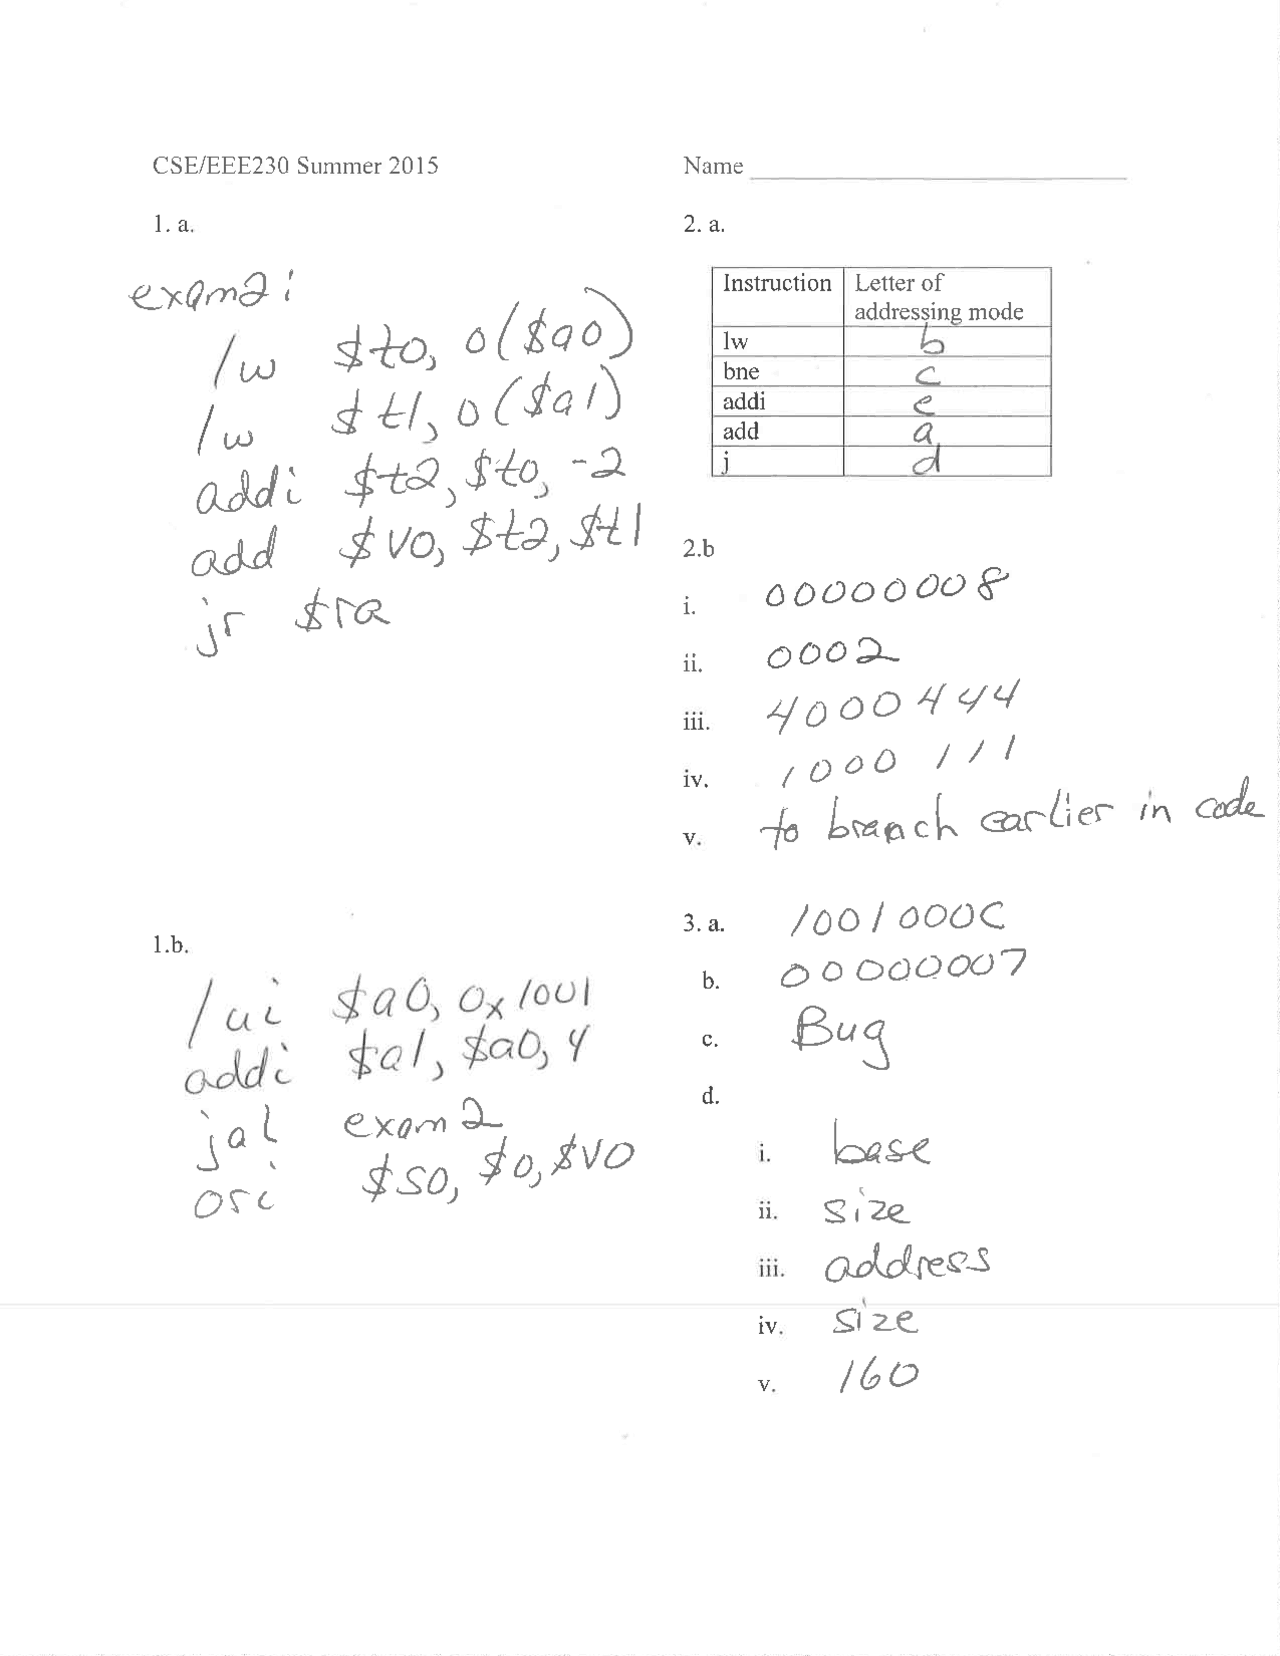 CSE/EEE230 Summer 2015
Name
1. a.
exam2:
lw $t0, 0($a0)
lw $t1, 0($a1)
addi $t2, $t0, -2
add $v0, $t2, $t1
jr $ra
1.b.
lui $a0, 0x1001
addi $a1, $a0, 4
jal exam2
ori $s0, $0, $v0
2. a.
Instruction Letter of addressing mode
lw b
bne c
addi e
add a
j d
2.b
i. 00000008
ii. 0002
iii. 4000444
iv. 1000111
v. to branch earlier in code
3. a. 1001000C
b. 00000007
c. Bug
d.
i. base
ii. size
iii. address
iv. size
v. 160